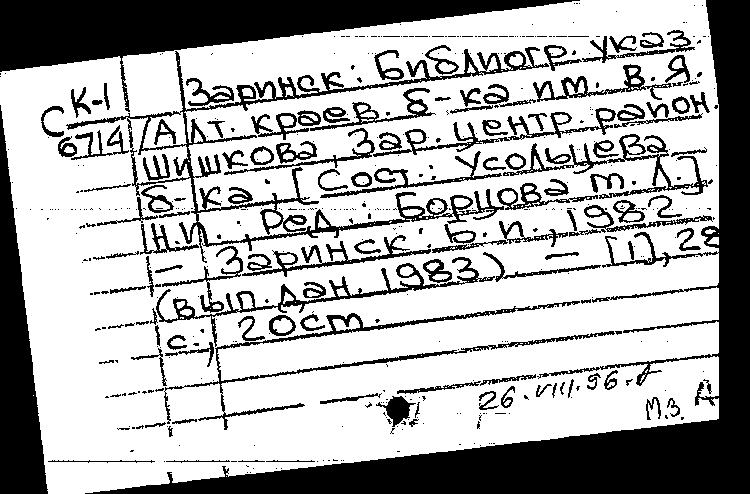 С К-1
6714
Заринск: Библиогр. указ.
/Алт. краев. б-ка им. В.Я.
Шишкова, Зар. центр. район.
б-ка; [Сост.: Усольцева
Н.П.; Ред.: Борцова Т.Л.]
— Заринск: Б.и., 1982
(вып. дан. 1983). — [1], 28
с.; 20 см.
26.VIII.96.
М.З. А